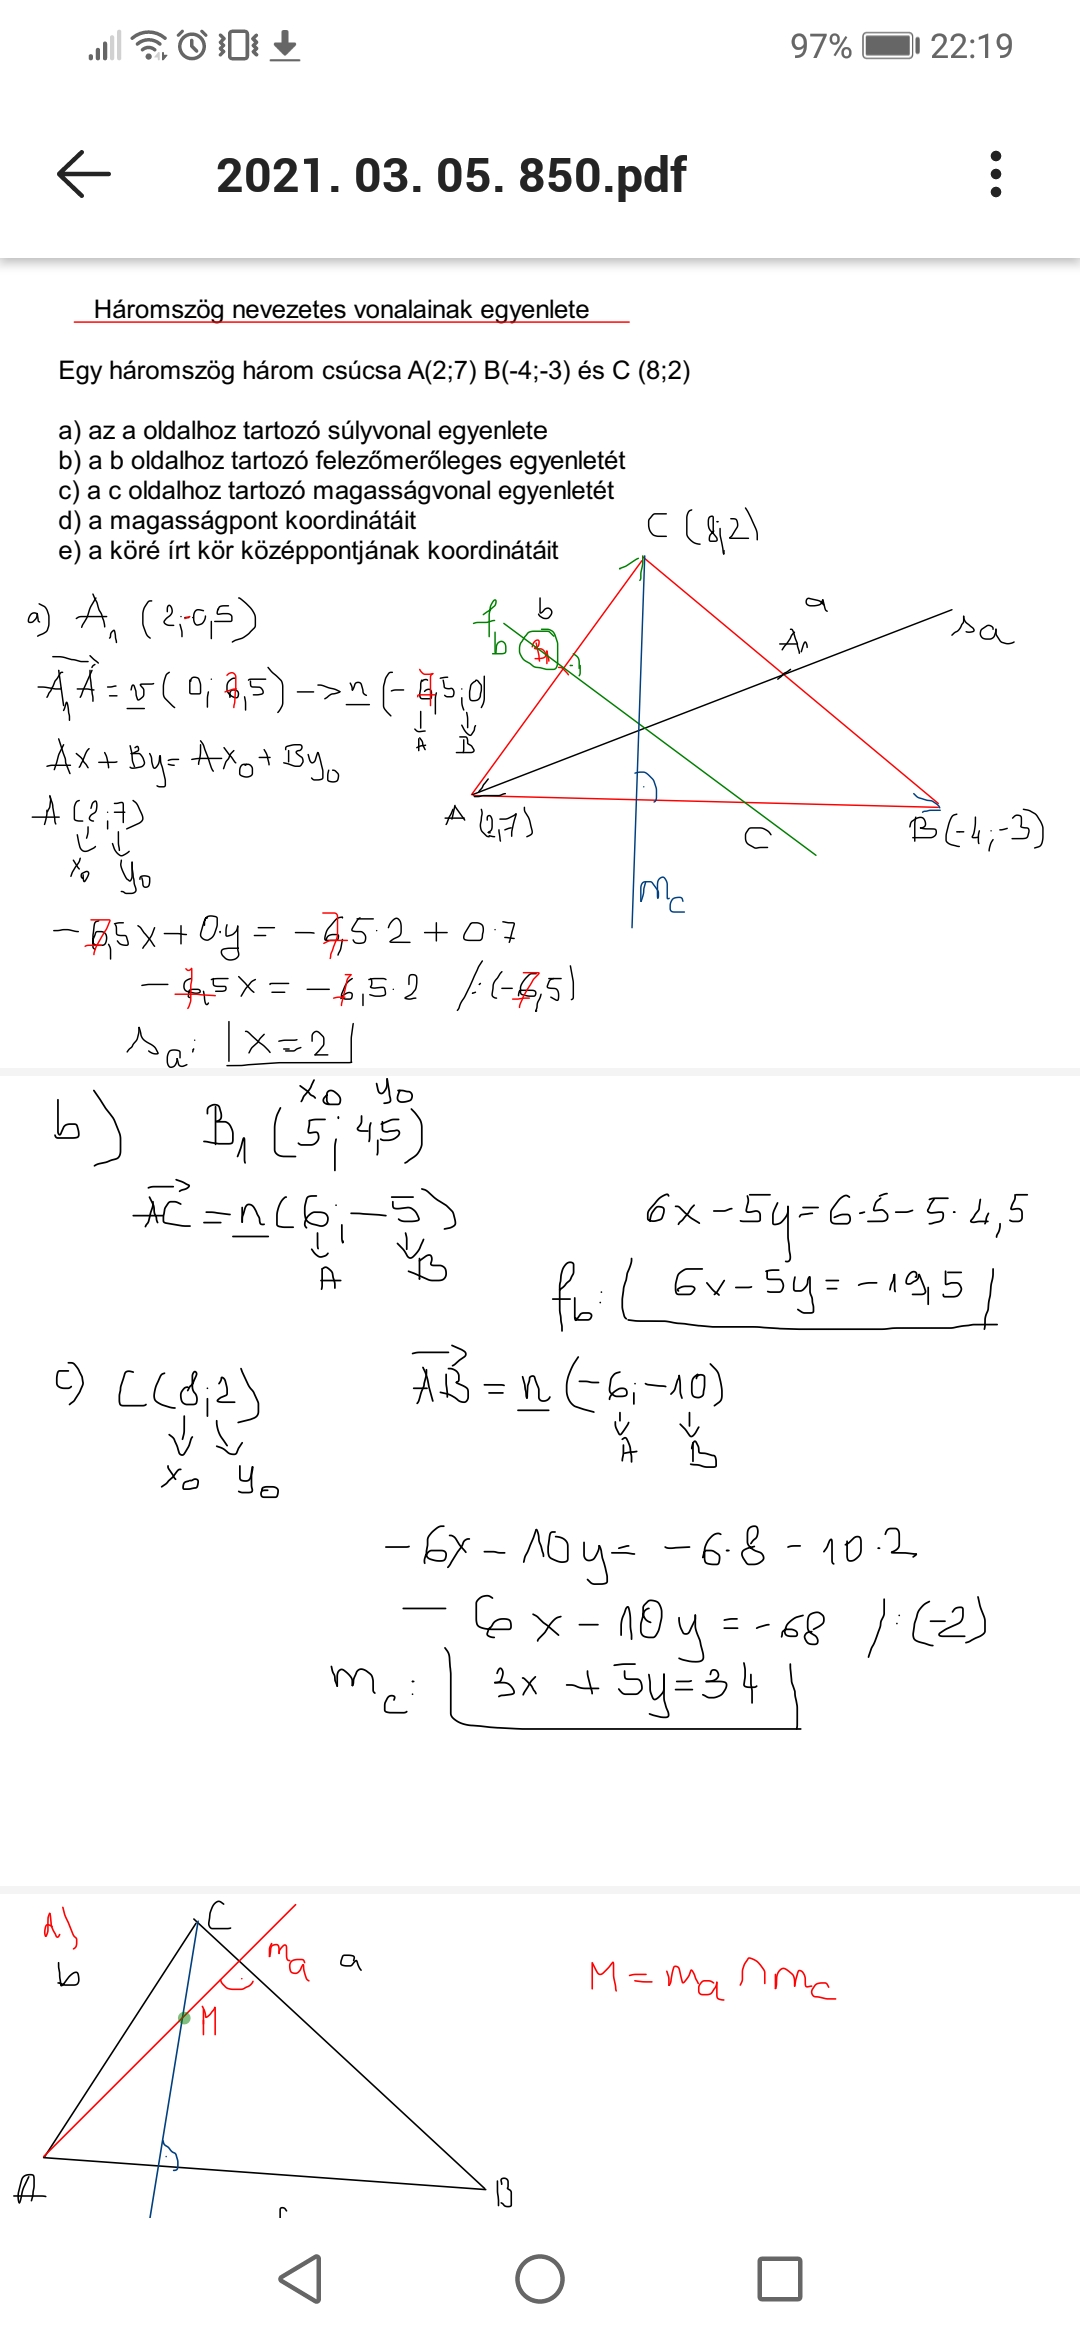 97% 22:19
2021. 03. 05. 850.pdf
Háromszög nevezetes vonalainak egyenlete
Egy háromszög három csúcsa A(2;7) B(-4;-3) és C (8;2)
a) az a oldalhoz tartozó súlyvonal egyenlete
b) a b oldalhoz tartozó felezőmerőleges egyenletét
c) a c oldalhoz tartozó magasságvonal egyenletét
d) a magasságpont koordinátáit
e) a köré írt kör középpontjának koordinátáit
C (8;2)
b
a
fb
B1
A1
sa
A (2,7)
C
B (-4;-3)
mc
a) A1 (2;-0,5)
A1A = v (0; 7,5) -> n (-7,5; 0)
A B
Ax + By = Ax0 + By0
A (2;7)
x0 y0
-7,5x + 0·y = -7,5·2 + 0·7
-7,5x = -7,5·2 /:(-7,5)
sa: x=2
x0 y0
b) B1 (5; 4,5)
AC = n (6; -5)
A B
6x-5y=6·5-5·4,5
fb: 6x-5y=-19,5
c) C(8;2)
x0 y0
AB = n (-6; -10)
A B
-6x-10y=-6·8-10·2
-6x-10y=-68 /:(-2)
mc: 3x+5y=34
d)
C
b
ma
a
M
M = ma ∩ mc
A
B